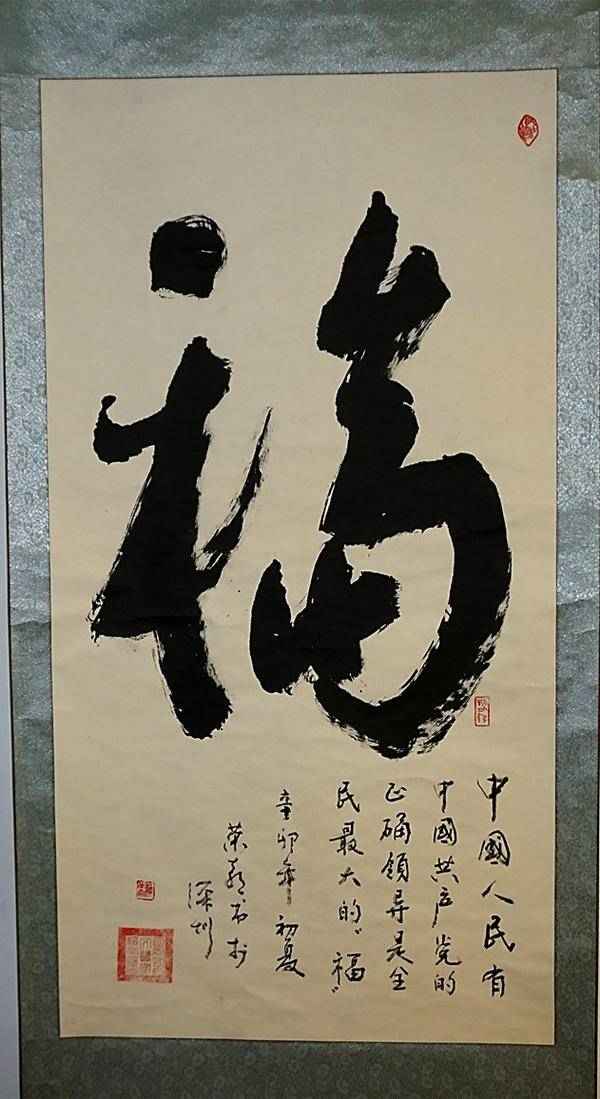 福
中國人民有
中國共产党的
正确領导是全
民最大的“福”
辛卯年初夏
书于
深圳